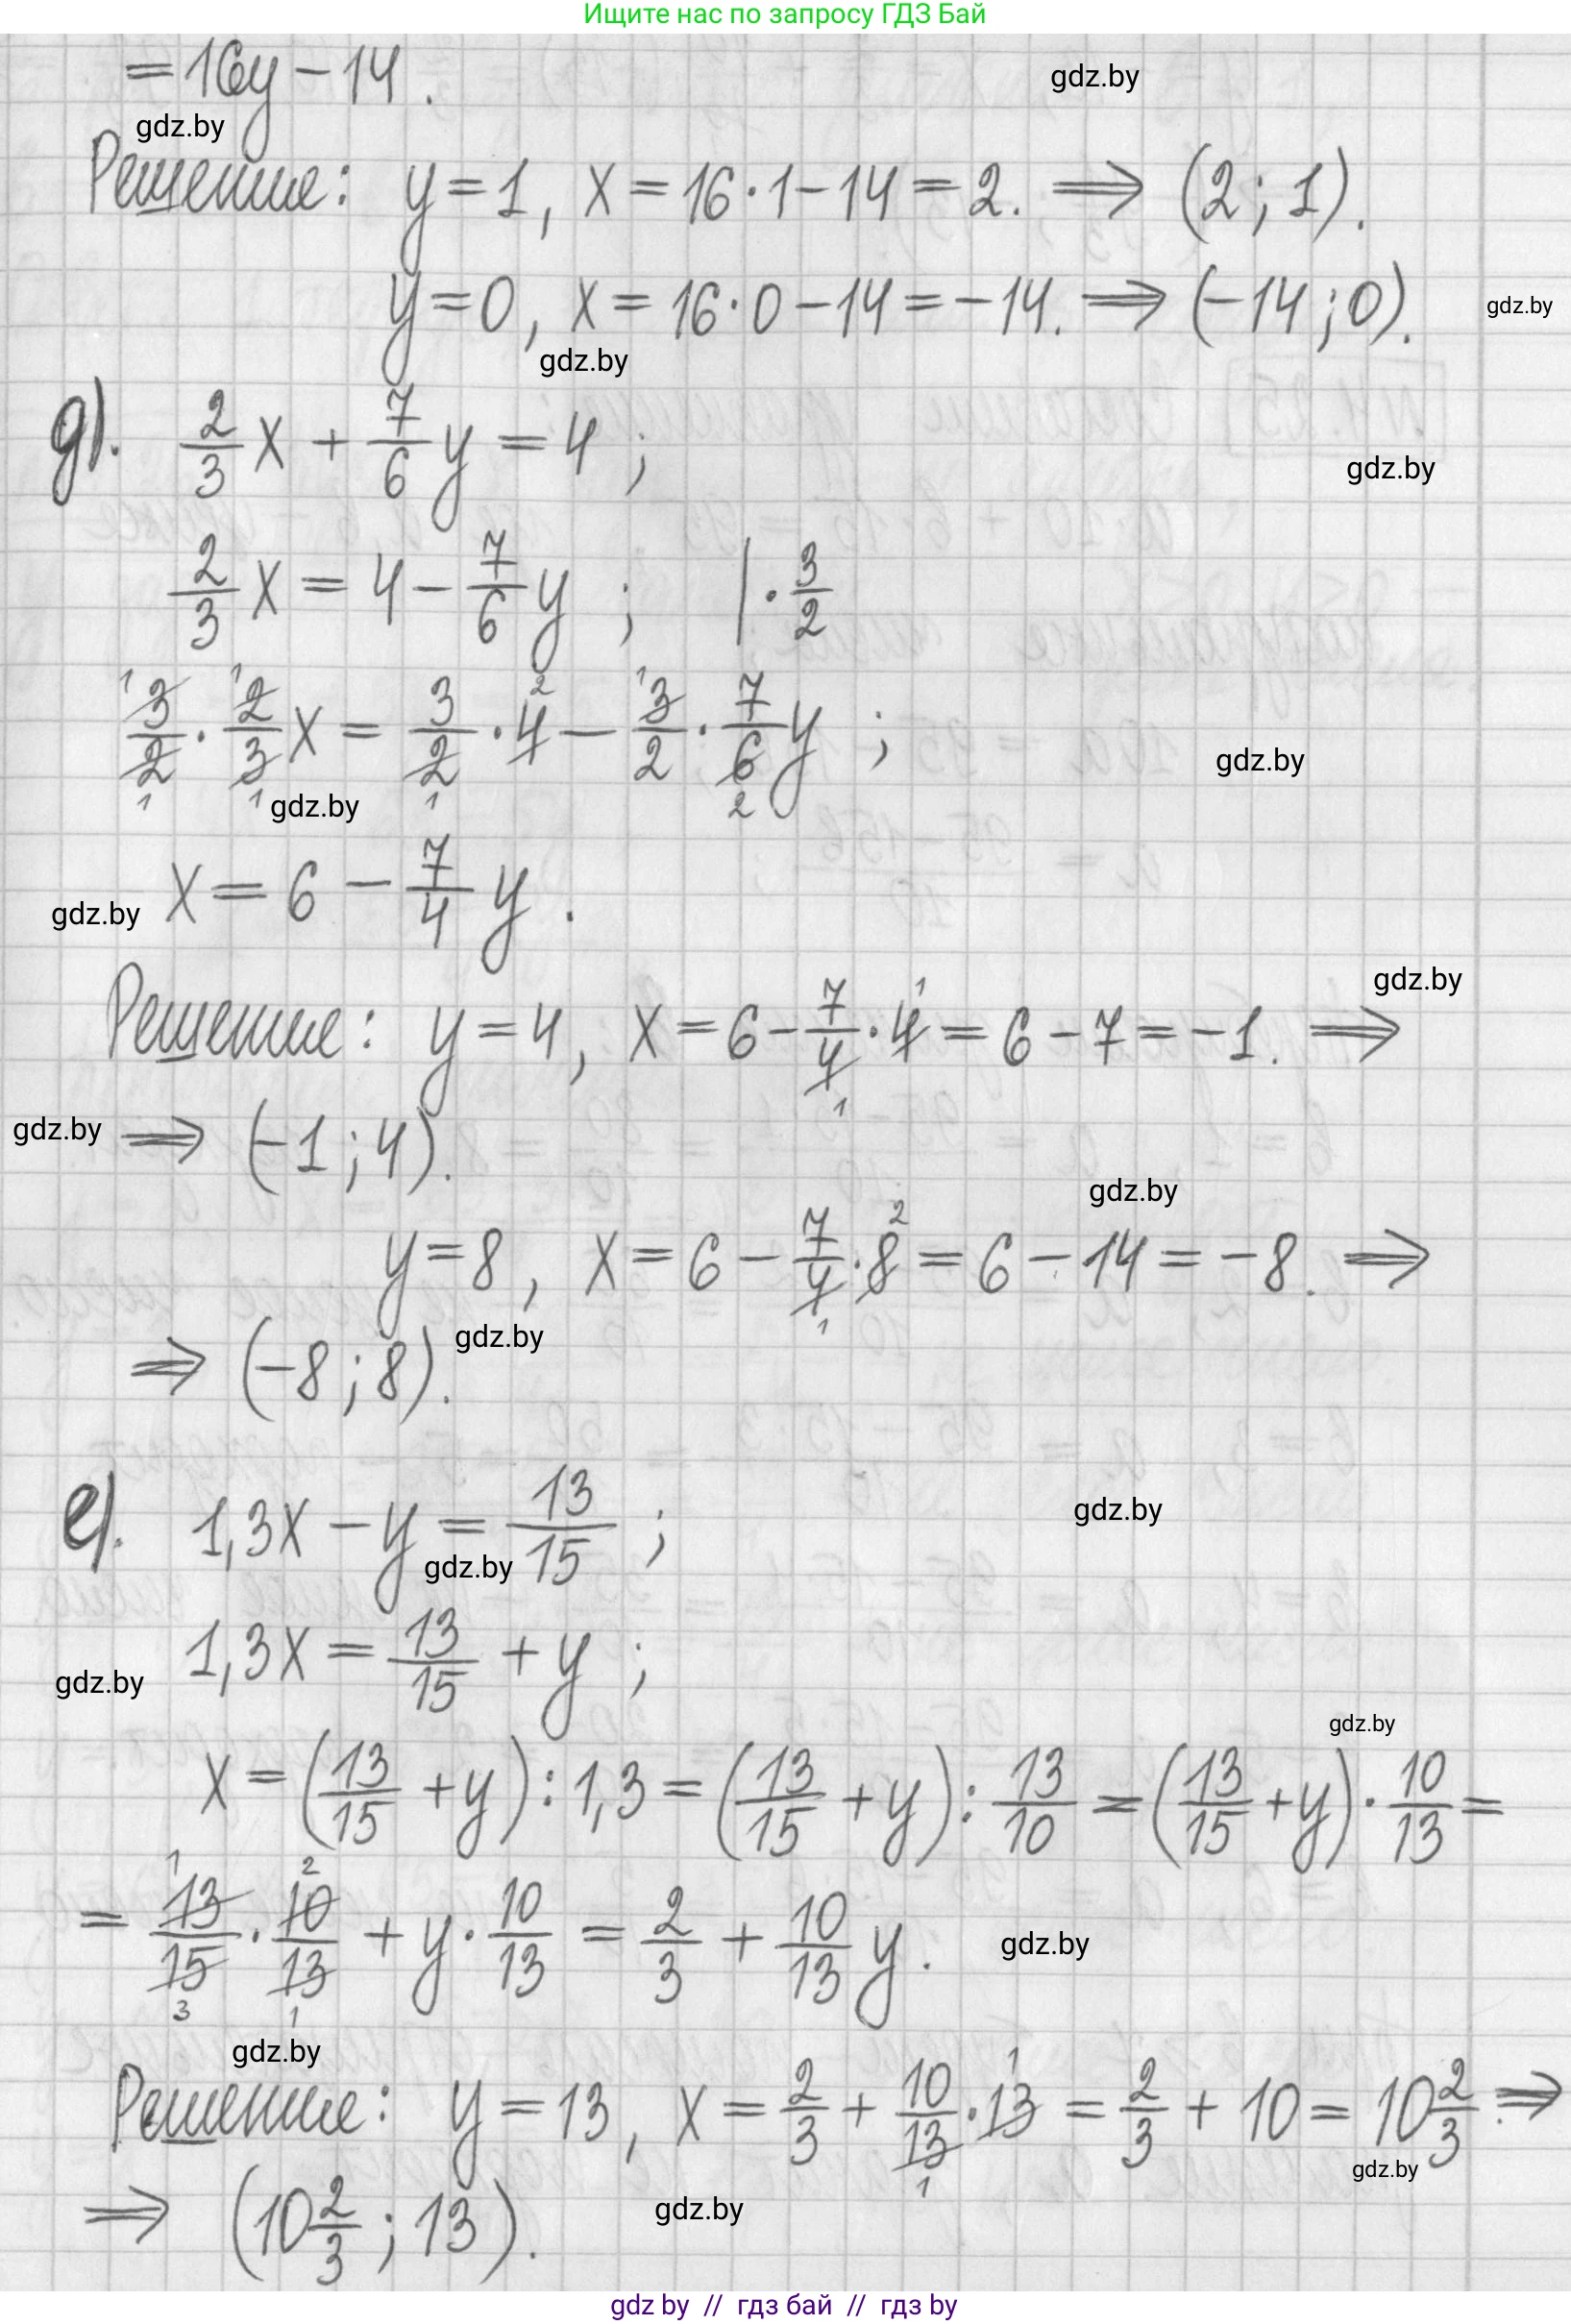 Ищите нас по запросу ГДЗ Бай
= 16y − 14.
gdz.by
gdz.by
Решение: y = 1, x = 16·1 − 14 = 2. ⟹ (2; 1).
y = 0, x = 16·0 − 14 = −14. ⟹ (−14; 0).
gdz.by
gdz.by
д). 2/3 x + 7/6 y = 4;
gdz.by
2/3 x = 4 − 7/6 y; | · 3/2
3/2 · 2/3 x = 3/2 · 4 − 3/2 · 7/6 y;
gdz.by
gdz.by
x = 6 − 7/4 y.
gdz.by
gdz.by
Решение: y = 4, x = 6 − 7/4 · 4 = 6 − 7 = −1. ⟹
gdz.by
⟹ (−1; 4).
gdz.by
y = 8, x = 6 − 7/4 · 8 = 6 − 14 = −8. ⟹
gdz.by
⟹ (−8; 8).
е). 1,3x − y = 13/15;
gdz.by
gdz.by
1,3x = 13/15 + y;
gdz.by
gdz.by
x = (13/15 + y) : 1,3 = (13/15 + y) : 13/10 = (13/15 + y) · 10/13 =
= 13/15 · 10/13 + y · 10/13 = 2/3 + 10/13 y.
gdz.by
gdz.by
Решение: y = 13, x = 2/3 + 10/13 · 13 = 2/3 + 10 = 10 2/3. ⟹
gdz.by
⟹ (10 2/3; 13).
gdz.by
gdz by // гдз бай // гдз by